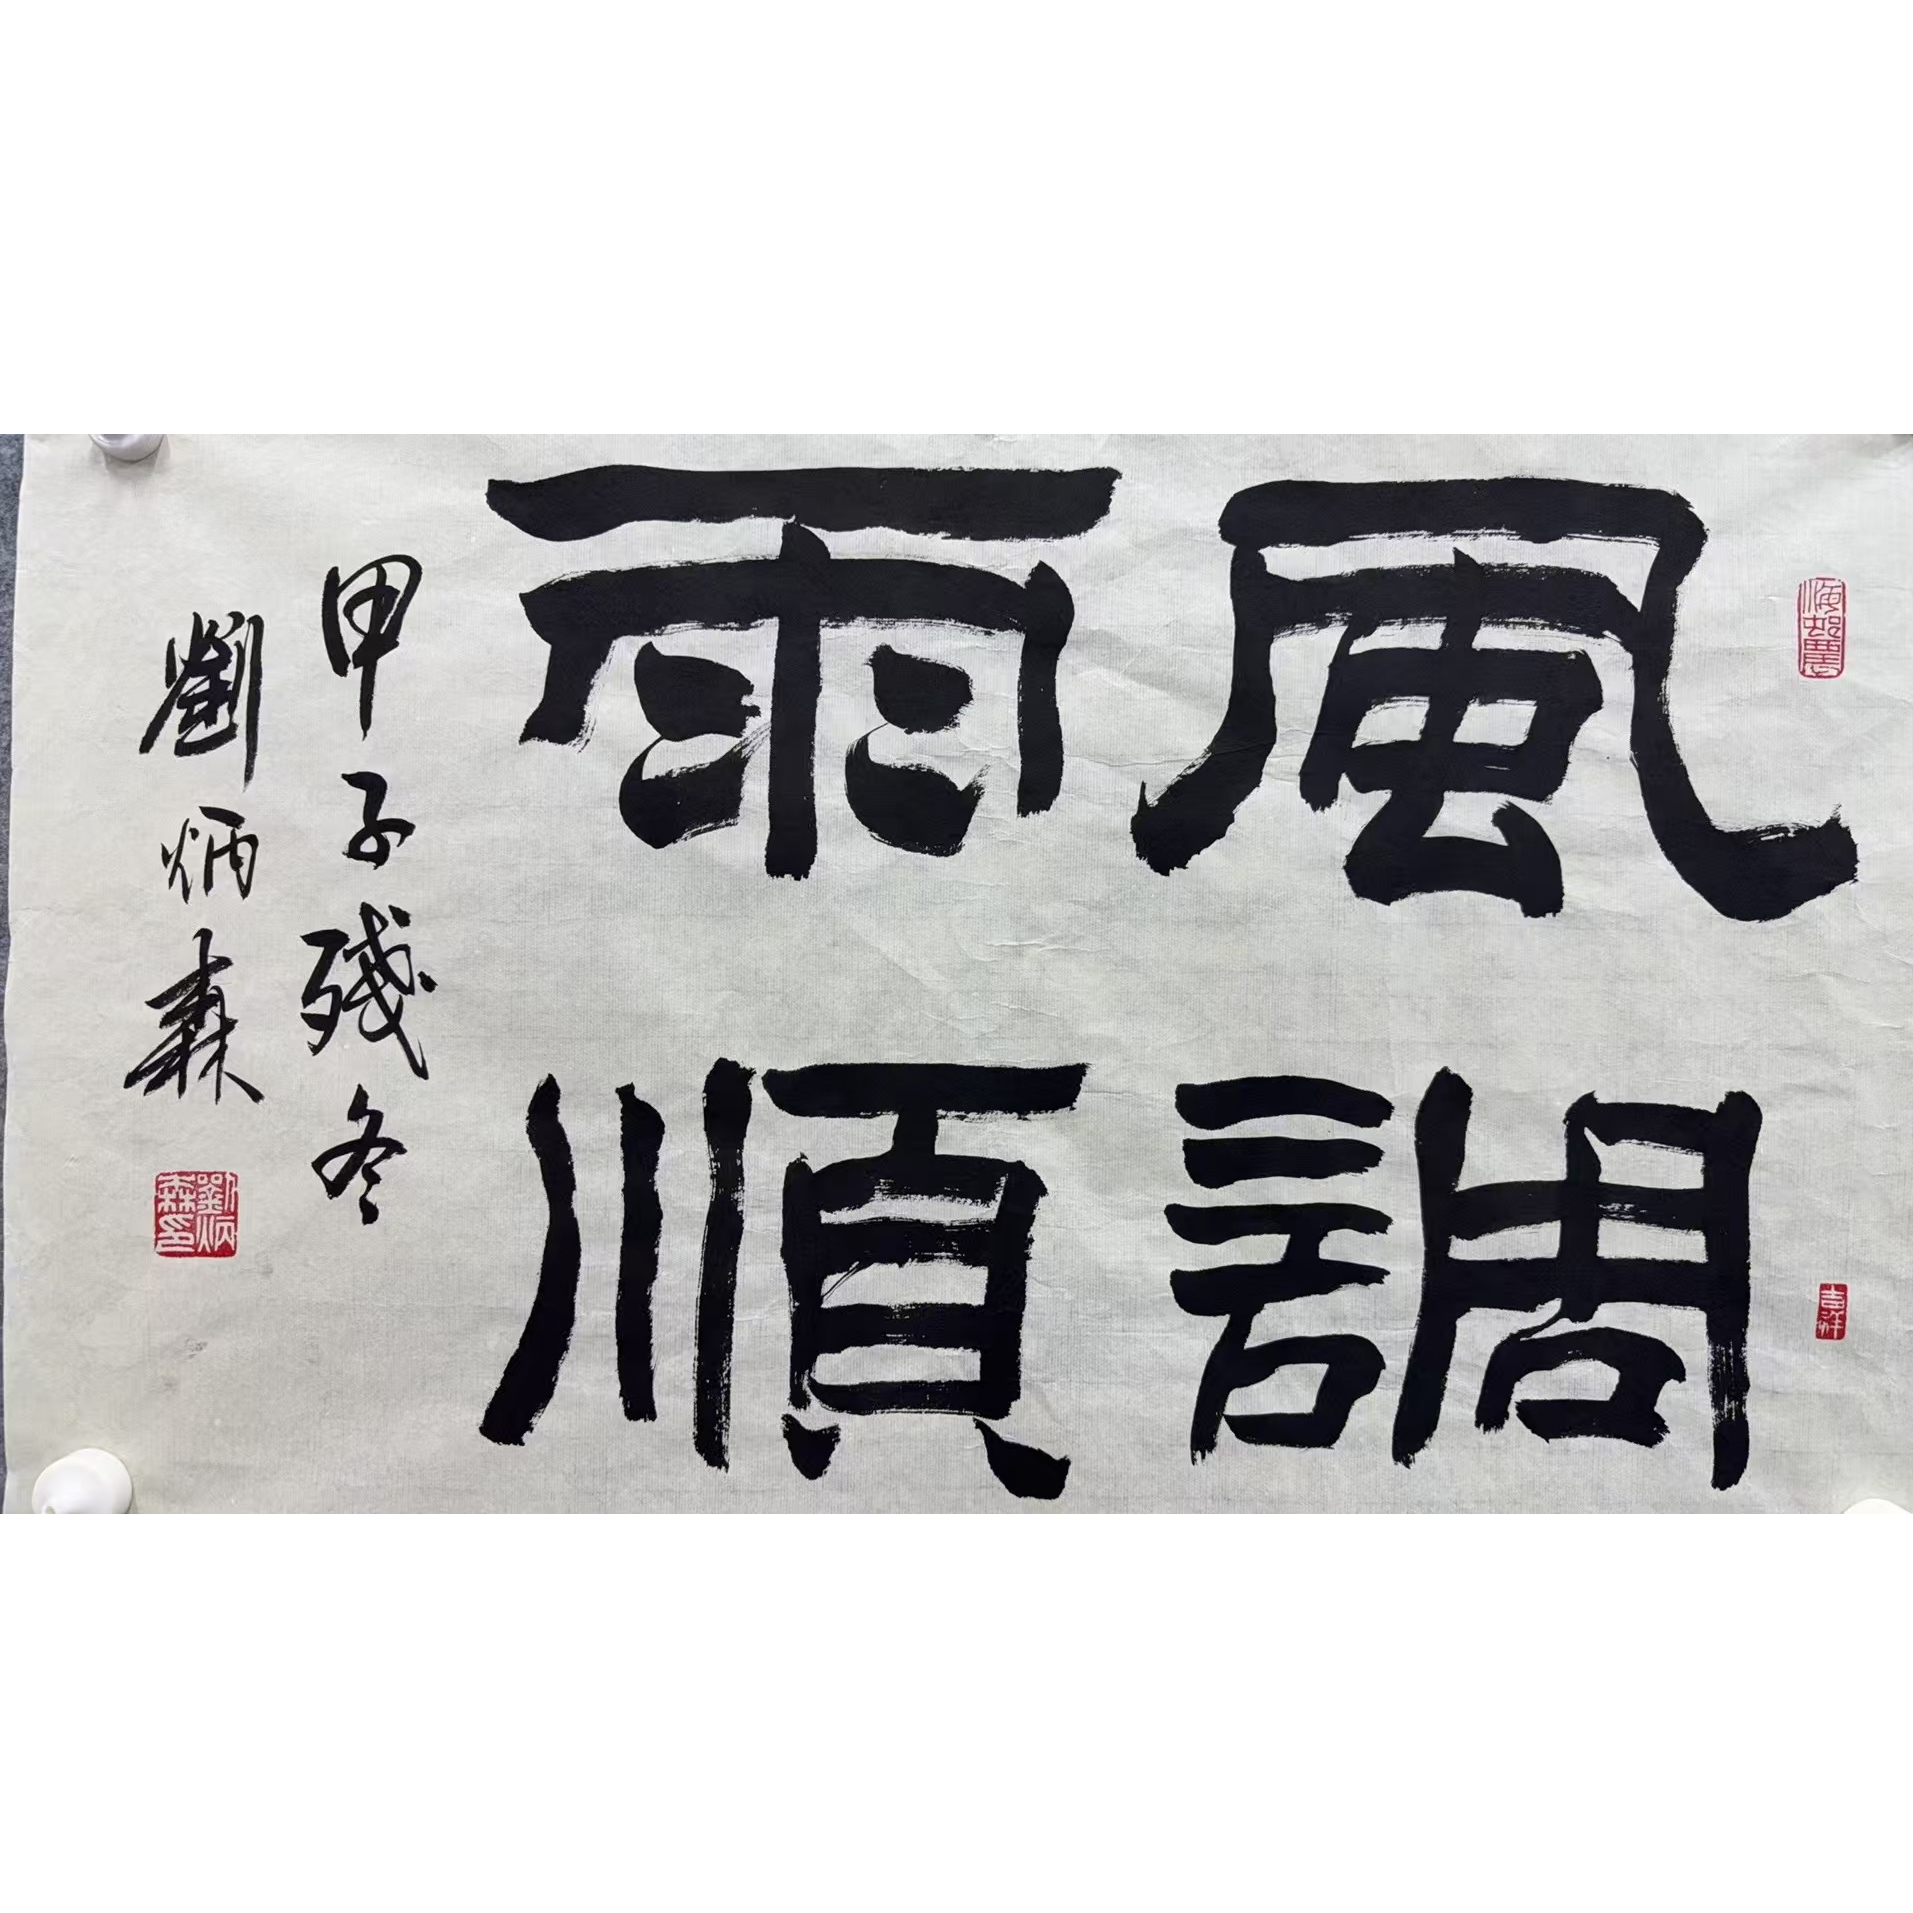 風調
雨順
甲子残冬
劉炳森
劉炳森印
吉祥